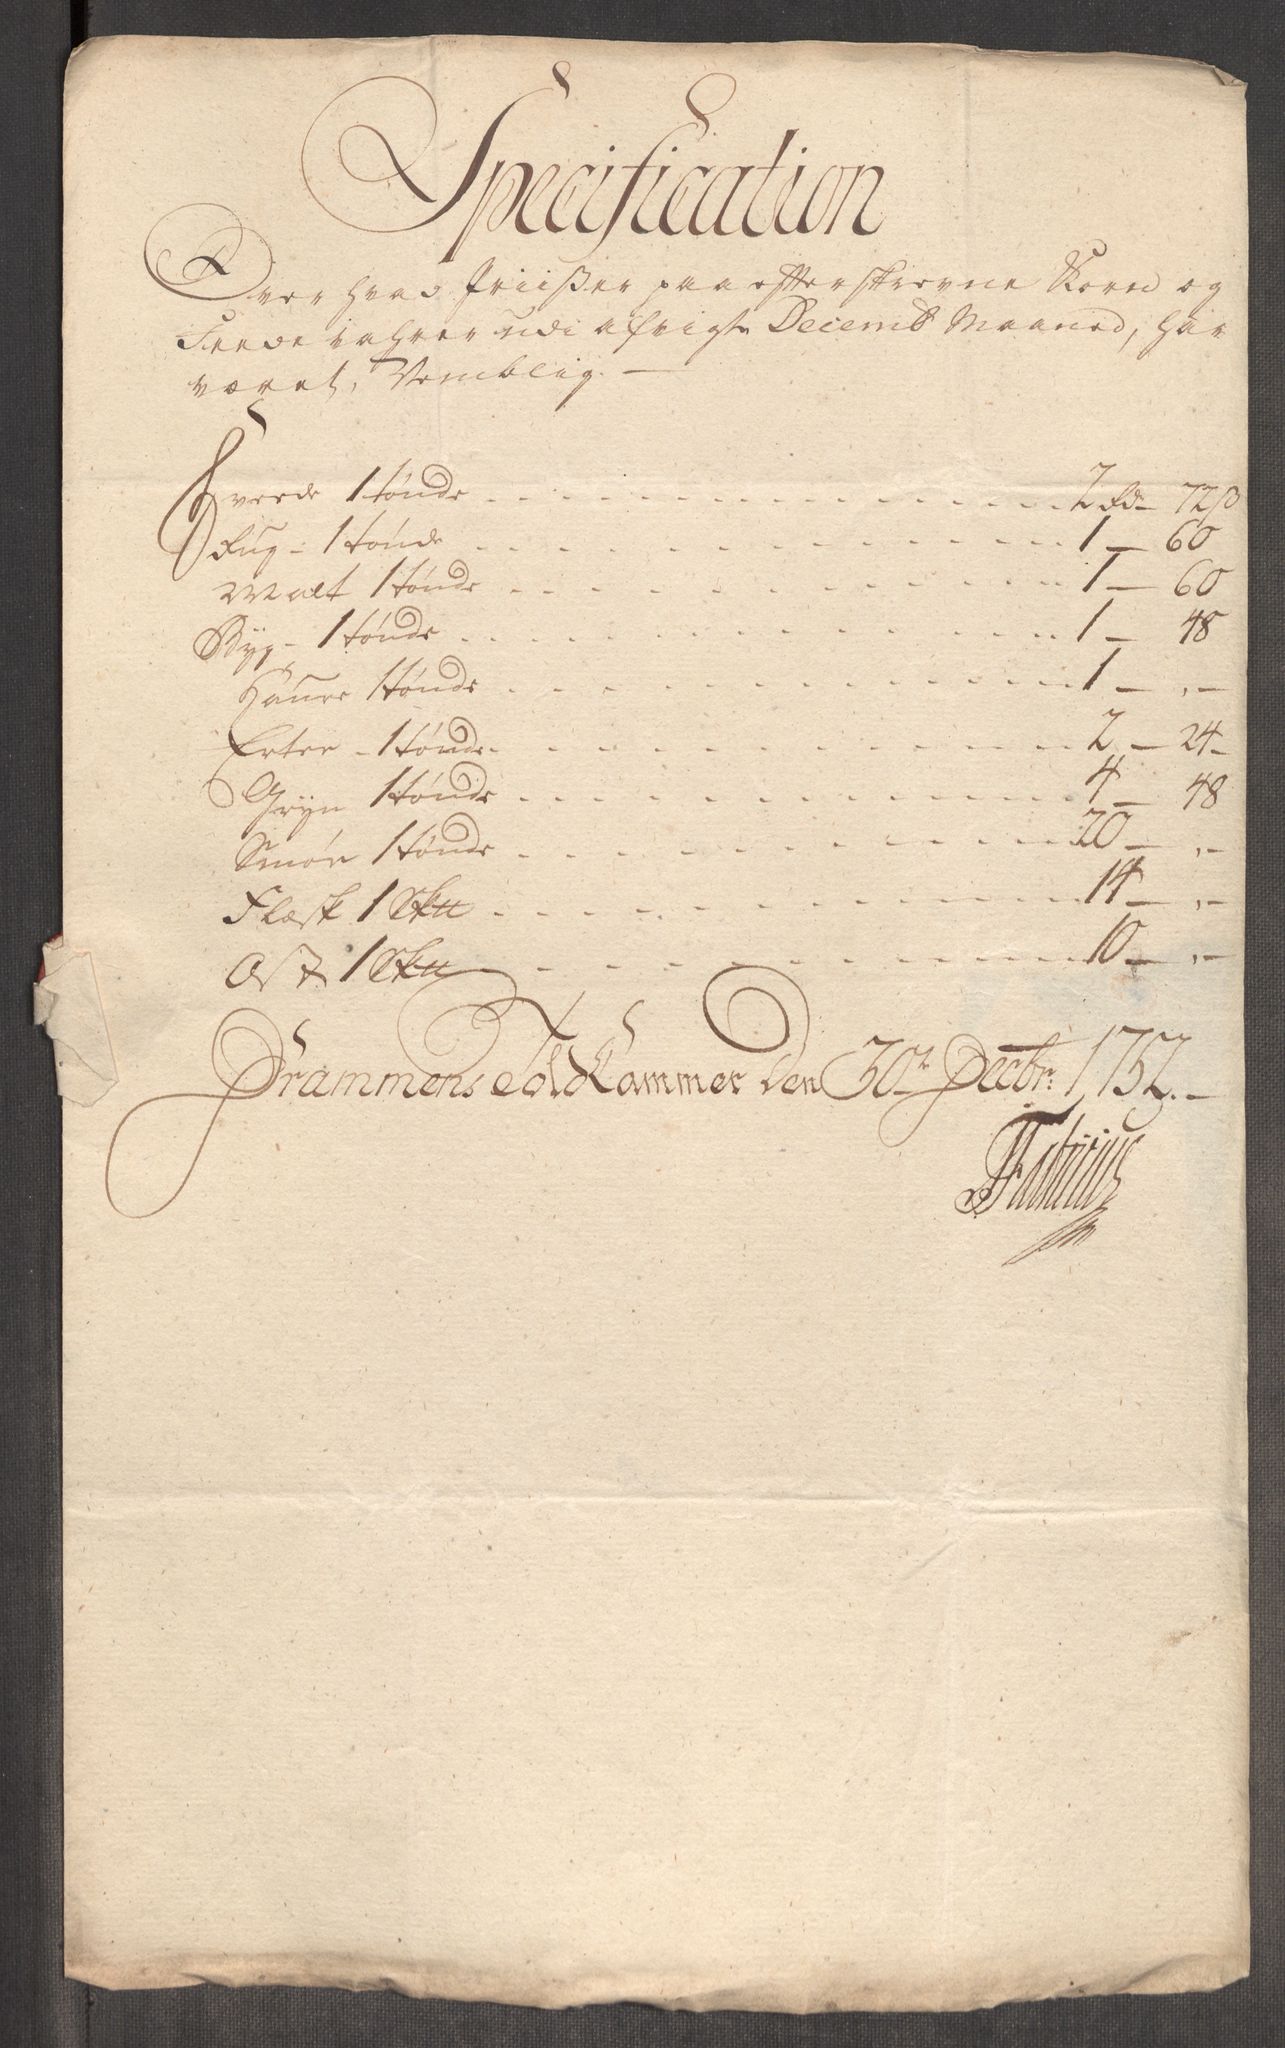 Specification
Over hvad Priißer paa efterskrevne Korn og
Feede Vahrer udi afvigte Decemb Maaned, har
været, Nemblig. —
Hvede 1 tønde 2 Rd— 72 ß
Rug - 1 tønde 1 — 60
Malt 1 tønde 1 — 60
Byg - 1 tønde 1 — 48
Haure 1 tønde 1 — „ —
Erter - 1 tønde 2 — 24 —
Gryn 1 tønde 4 — 48
Smör 1 tønde 20 — „ —
Flæsk 1 Sk℔ 14 — „ —
Ost 1 Sk℔ 10 — „ —
Drammens Told Kammer den 30te Decbr: 1752. —